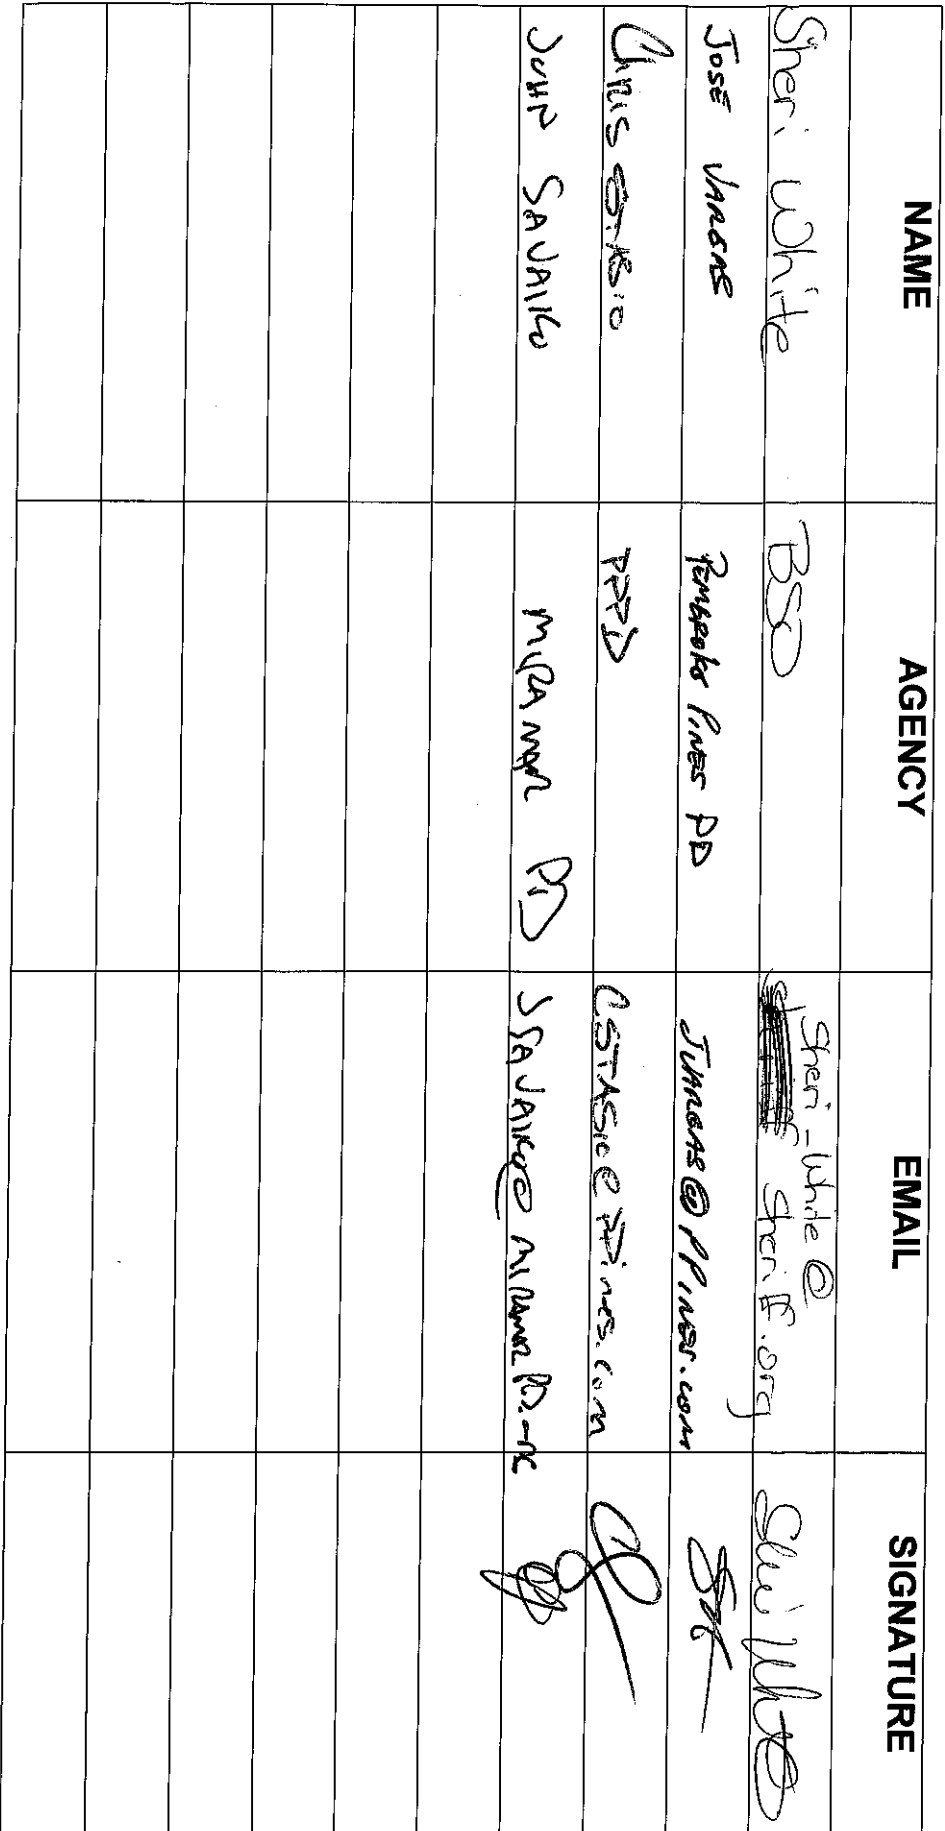 NAME AGENCY EMAIL SIGNATURE
Sheri White BSO Sheri_White@
Sheriff.org Sheri White
JOSE VARGAS PEMBROKE PINES PD JVARGAS@PPINES.COM
CHRIS STASIO PPPD CSTASIO@PPines.com
JOHN SAVAIKO MIRAMAR PD JSAVAIKO@MIRAMARPD.